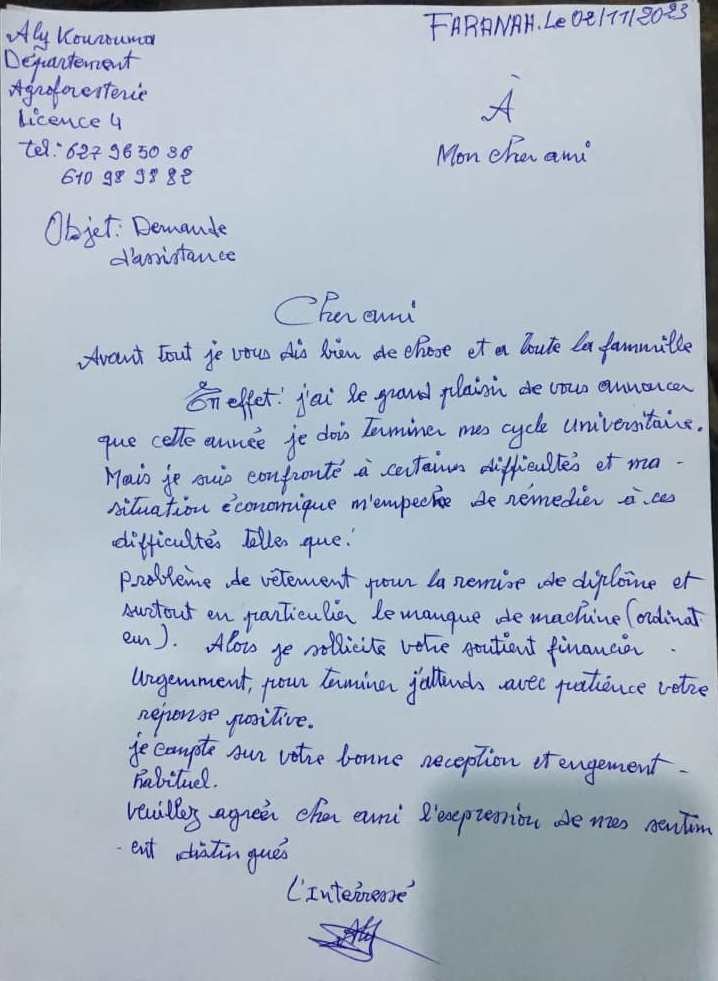 FARANAH. Le 02/11/2023
Aly Kourouma
Département
Agroforesterie
Licence 4
tel: 627 96 50 36
610 98 98 82
À
Mon cher ami
Objet: Demande
d'assistance
Cher ami
Avant tout je vous dis bien de chose et a toute la fammille
En effet: j'ai le grand plaisir de vous annoncer
que cette année je dois terminer mes cycle universitaire.
Mais je suis confronté à certaines difficultés et ma -
situation économique m'empeche de rémedier à ces
difficultés telles que:
problème de vêtement pour la remise de diplôme et
surtout en particulier le manque de machine (ordinat
eur). Alors je sollicite votre soutient financier .
Urgemment, pour terminer j'attends avec patience votre
réponse positive.
je compte sur votre bonne reception et engement -
habituel.
veuillez agréer cher ami l'expression de mes sentim
- ent distingués
L'Interressé
Aly